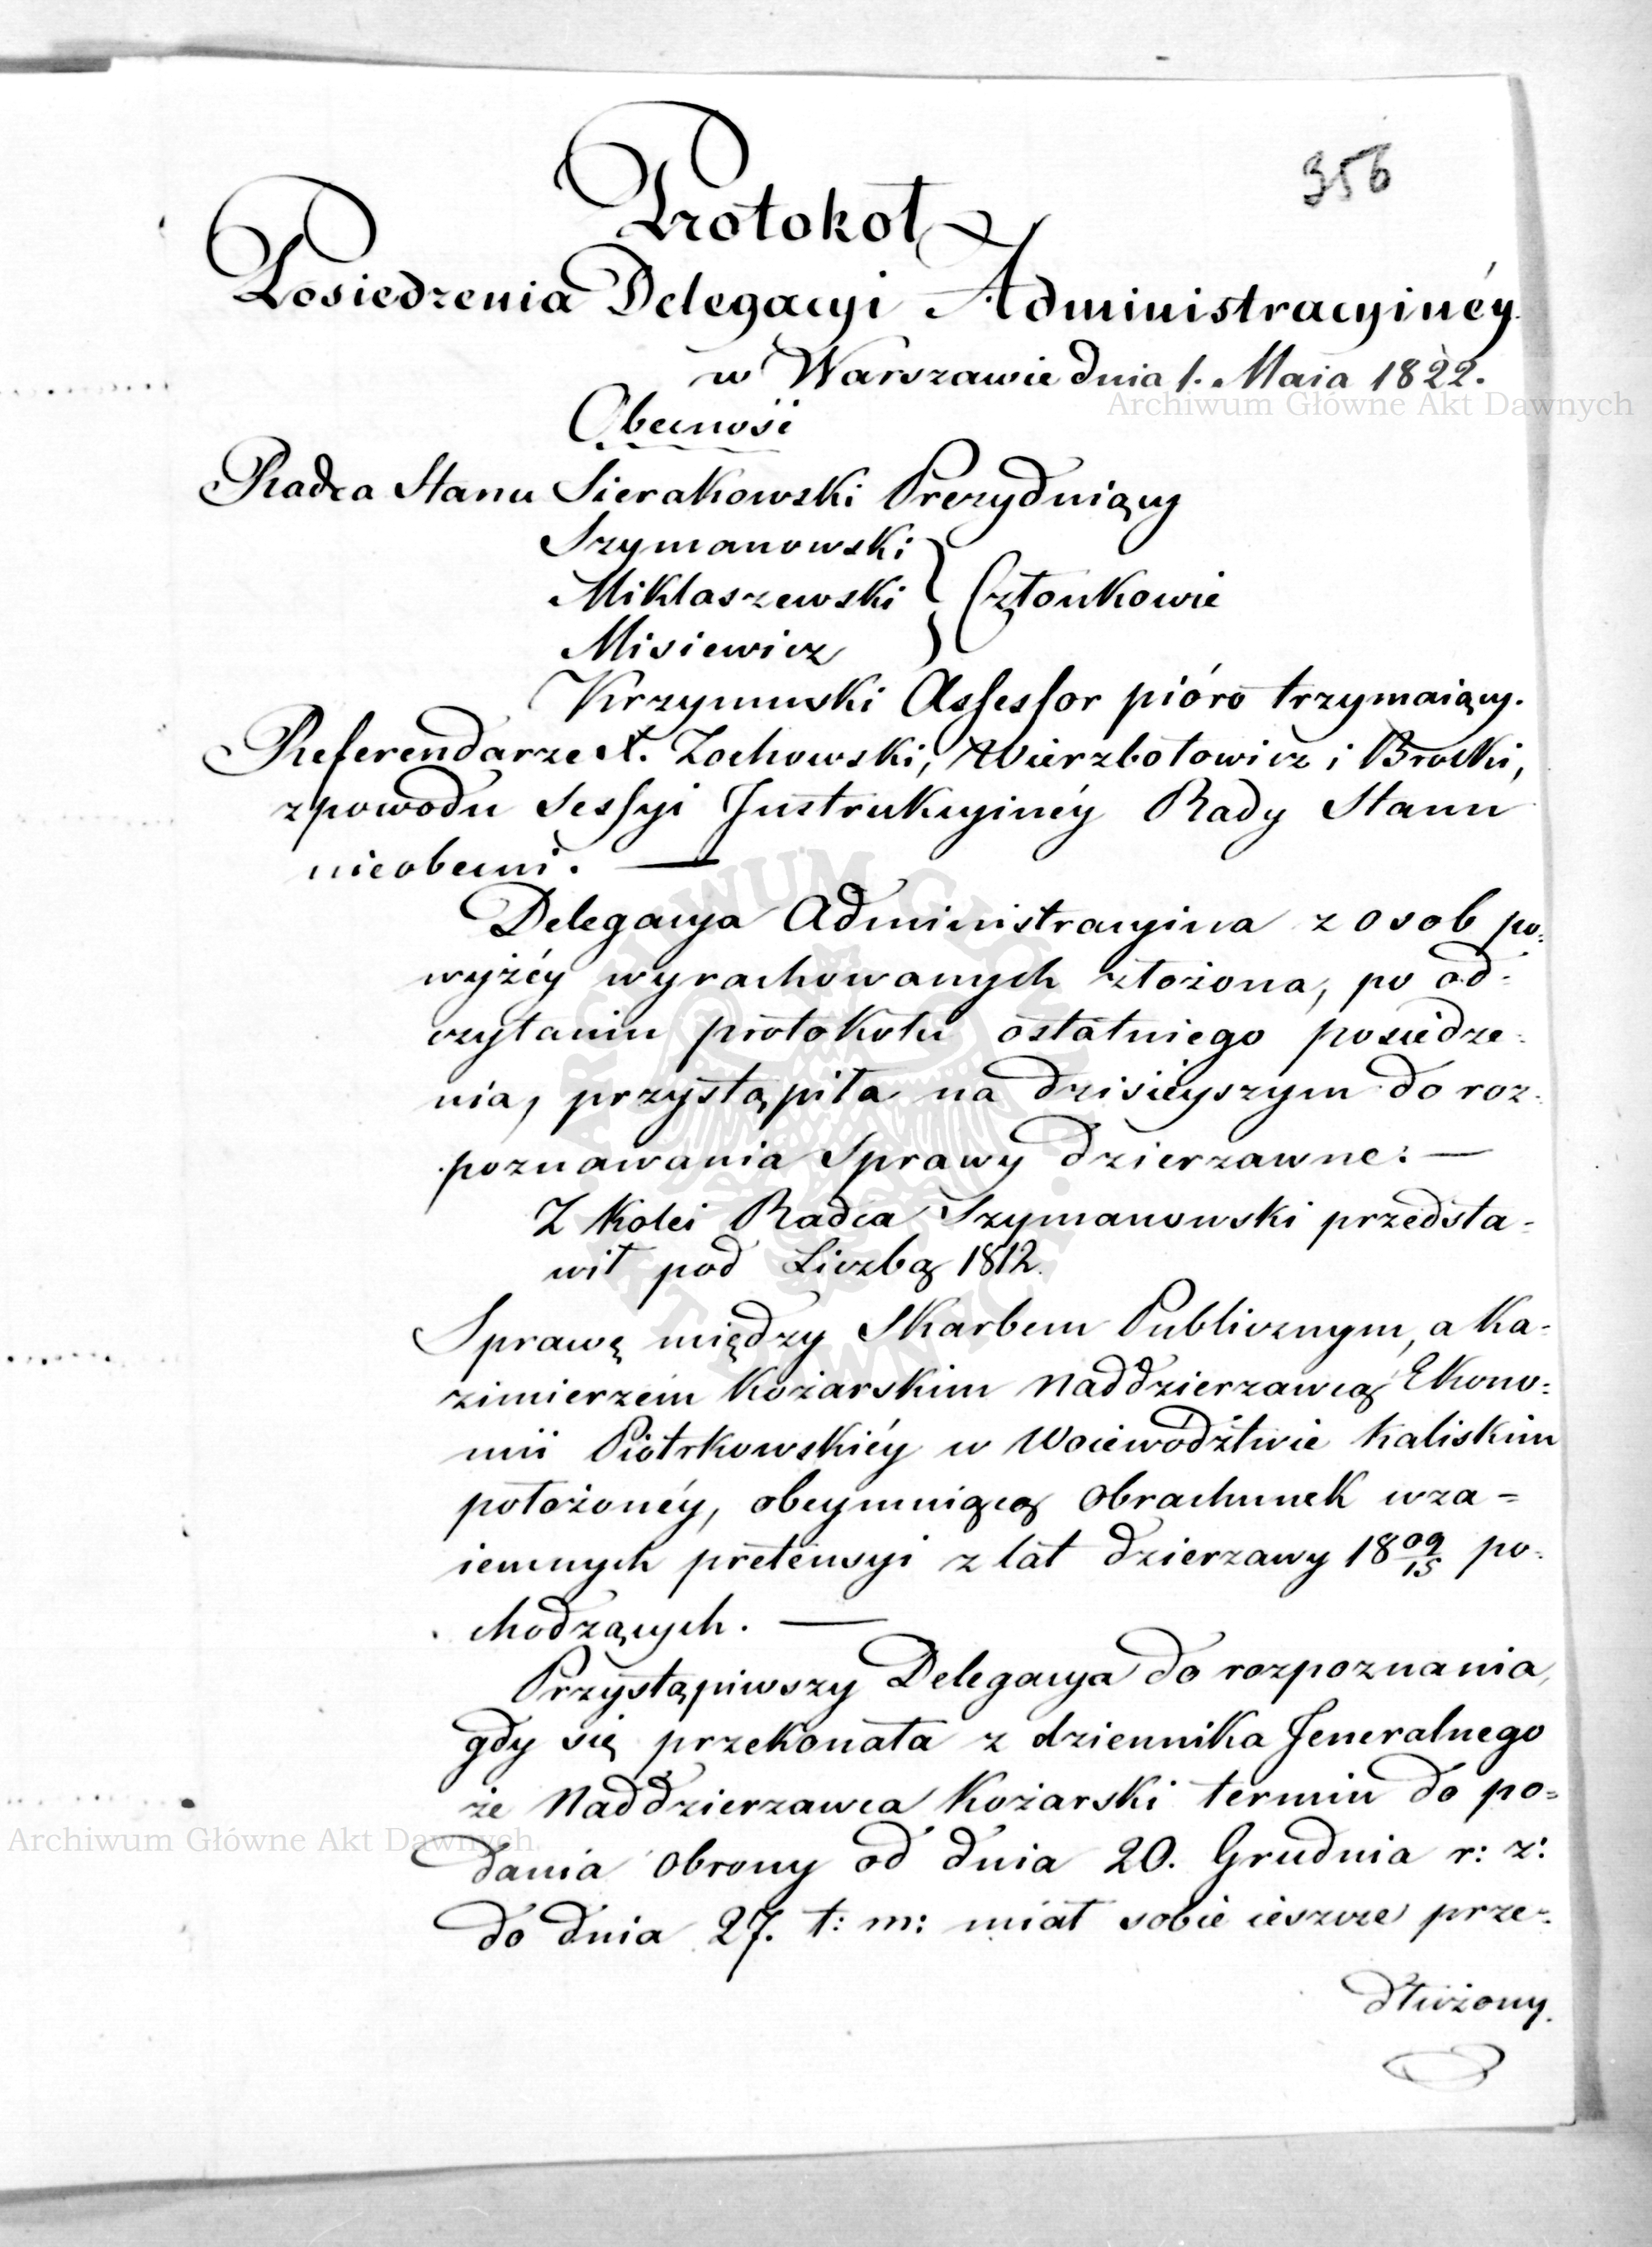 356
Protokoł
Posiedzenia Delegacyi Administracyinéy
w Warszawie dnia 1. Maia 1822.
Archiwum Główne Akt Dawnych
Obecności
Radca Stanu Sierakowski Prezyduiący
Szymanowski
Miklaszewski } Członkowie
Misiewicz
Krzymuski Assessor pióro trzymaiący.
Referendarze X. Zochowski, Wierzbołowicz i Brocki,
z powodu Sessyi Instrukcyinéy Rady Stanu
nieobecni. —
Delegacya Administracyina z osob po:
wyżéy wyrachowanych złożona, po od:
czytaniu protokołu ostatniego posiedze:
nia, przystąpiła na dzisieyszym do roz:
poznawania Sprawy dzierzawne: —
Z kolei Radca Szymanowski przedsta-
wił pod Liczbą 1812.
Sprawę między Skarbem Publicznym, a Ka:
zimierzem Kożarskim Naddzierzawcą Ekono:
mii Piotrkowskiéy w Woiewództwie Kaliskim
położonéy, obeymuiącą Obrachunek wza=
iemnych pretensyi z lat dzierzawy 18 09/15 po:
chodzących. —
Przystąpiwszy Delegacya do rozpoznania,
gdy się przekonała z dziennika Jeneralnego
że Naddzierzawca Kożarski termin do po=
Archiwum Główne Akt Dawnych
dania Obrony od dnia 20. Grudnia r: z:
do dnia 27. t: m: miał sobie ieszcze prze-
dłużony.